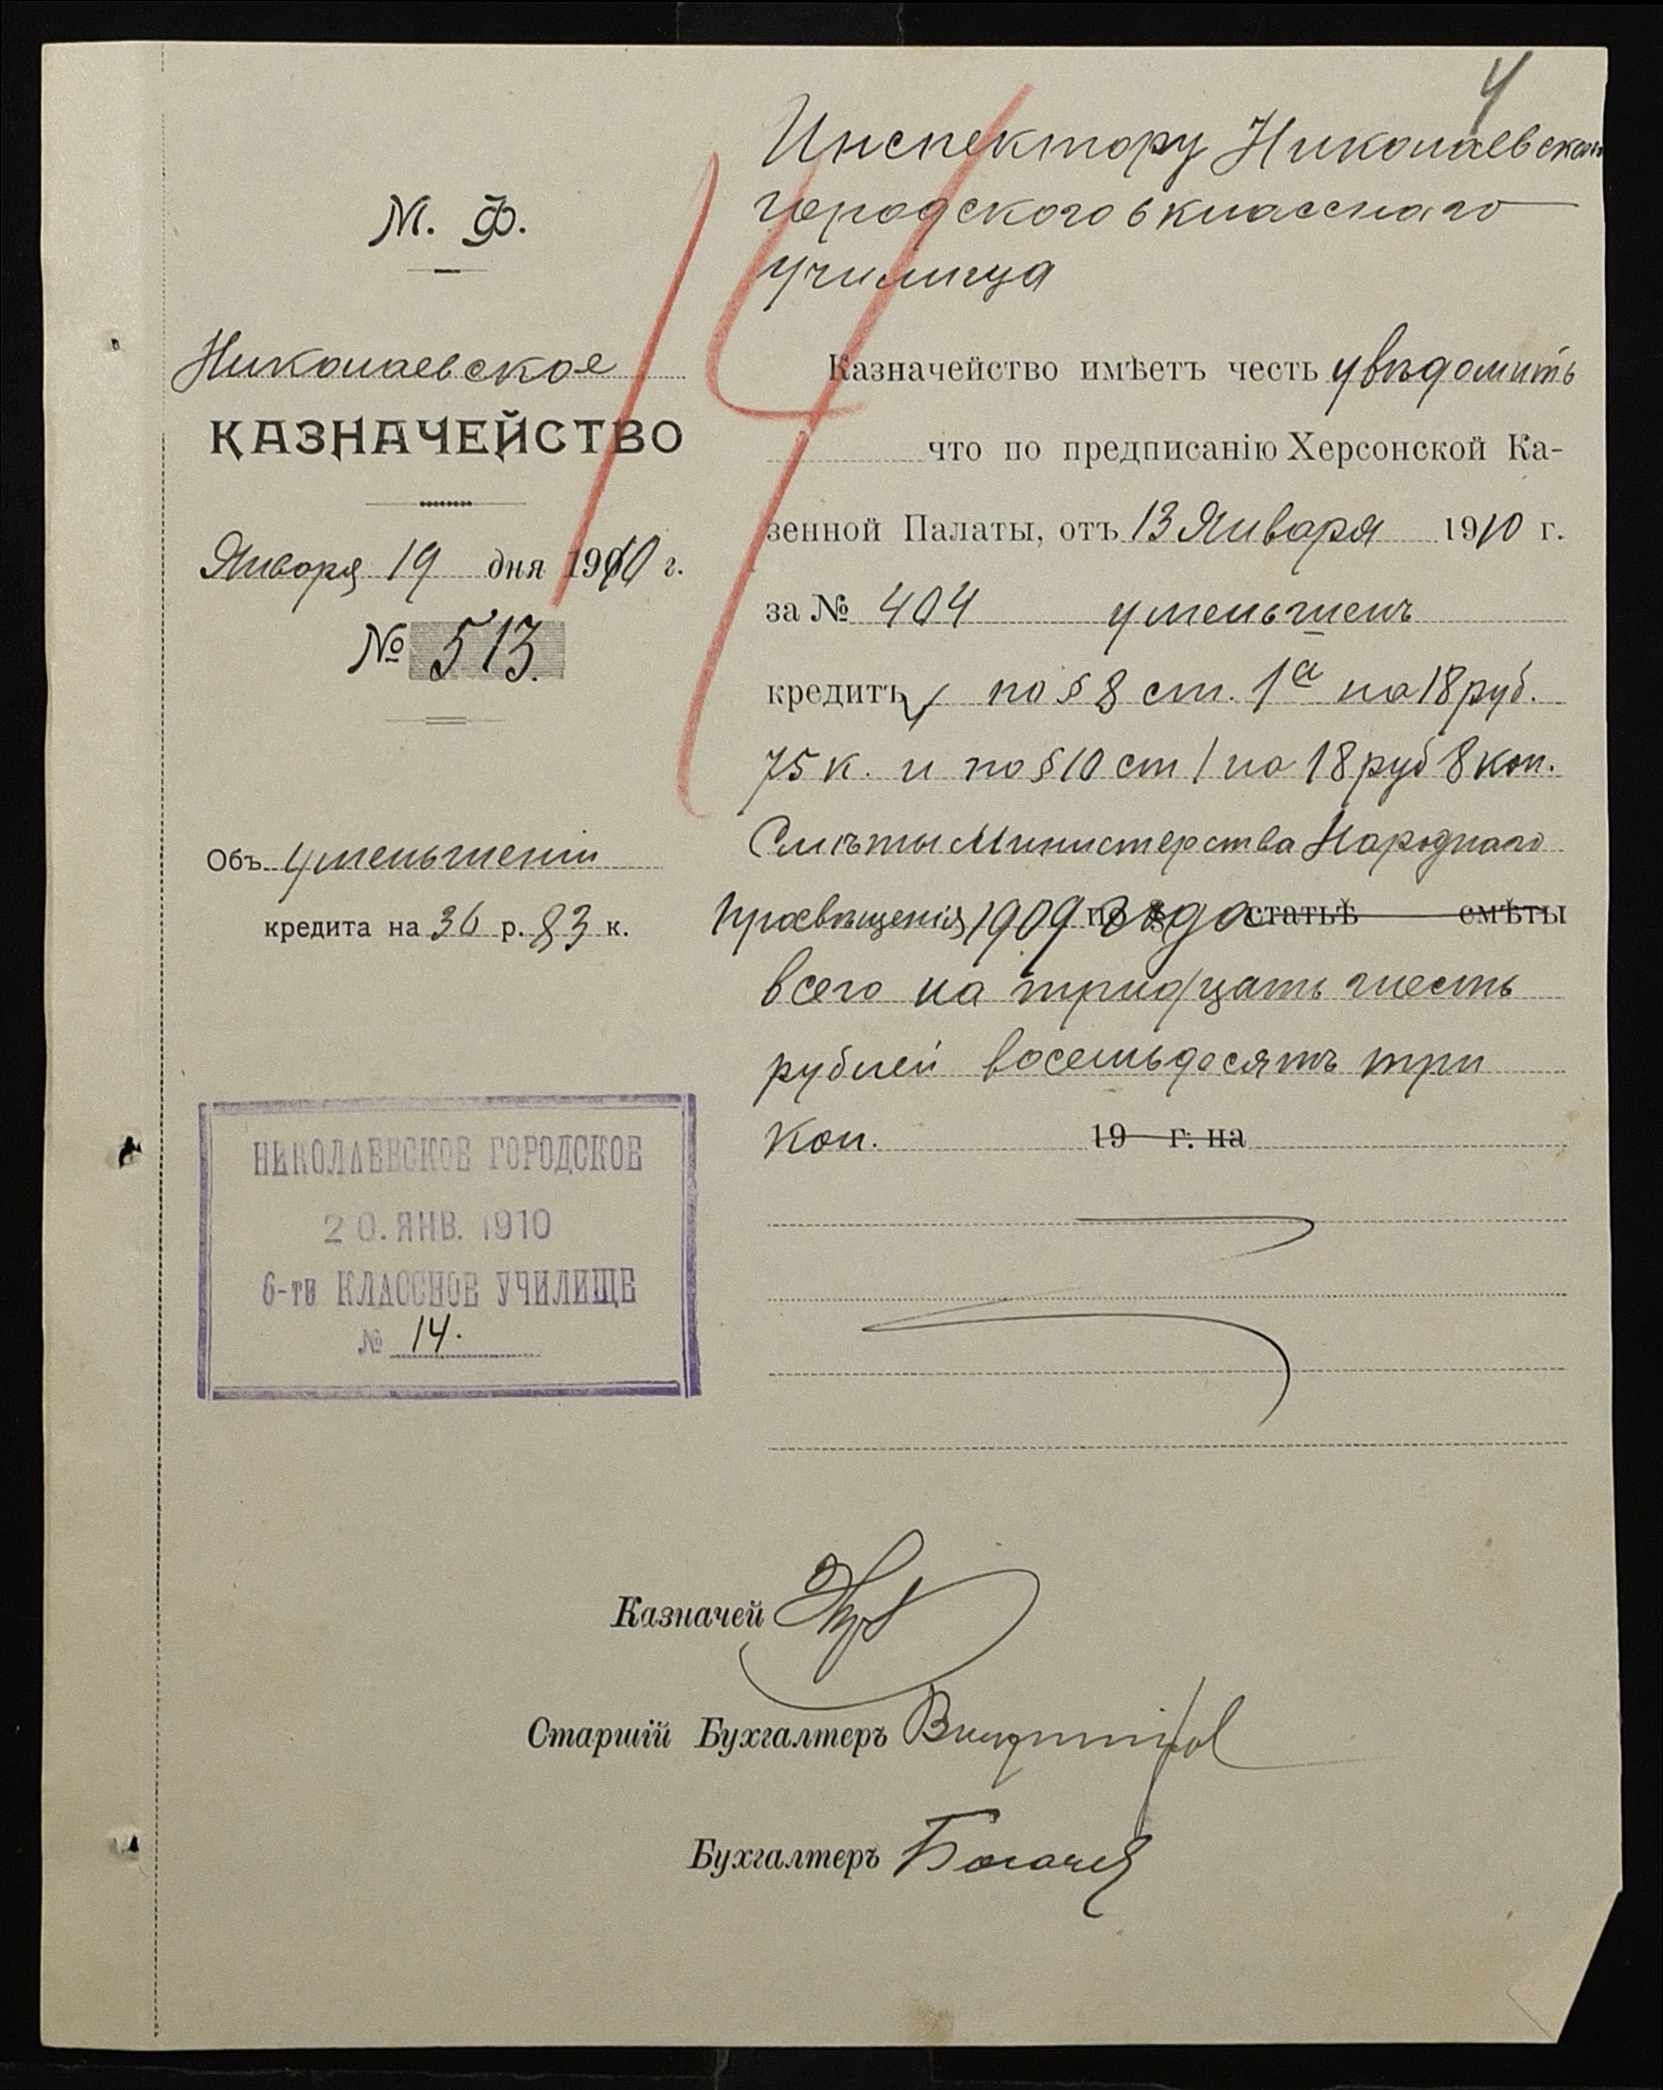 4
14
М. Ф.
Николаевское
КАЗНАЧЕЙСТВО
Января 19 дня 1910 г.
№ 513.
Объ уменьшеніи
кредита на 36 р. 83 к.
НИКОЛАЕВСКОЕ ГОРОДСКОЕ
20. ЯНВ. 1910
6-ти КЛАССНОЕ УЧИЛИЩЕ
№ 14.
Инспектору Николаевскаго
городского 6 класснаго
училища
Казначейство имѣетъ честь увѣдомить
что по предписанію Херсонской Ка-
зенной Палаты, отъ 13 Января 1910 г.
за № 404 уменьшенъ
кредитъ по § 8 ст. 1а на 18 руб.
75 к. и по § 10 ст 1 на 18 руб 8 коп.
Смѣты Министерства Народнаго
Просвѣщенія 1909 года по § статьѣ смѣты
всего на тридцать шесть
рублей восемьдесятъ три
коп. 19 г. на
Казначей
Старшій Бухгалтеръ
Бухгалтеръ